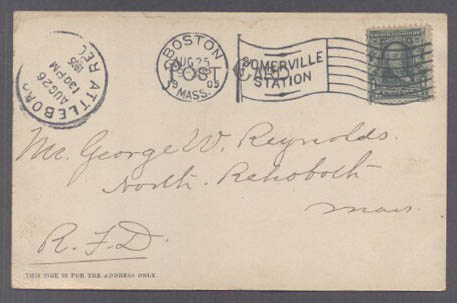 BOSTON
AUG 25
1905
MASS.
POST CARD
SOMERVILLE
STATION
ATTLEBORO
AUG 26
130 PM
1905
REC'D
Mr. George W. Reynolds.
North Rehoboth
Mass.
R. F. D.
THIS SIDE IS FOR THE ADDRESS ONLY.